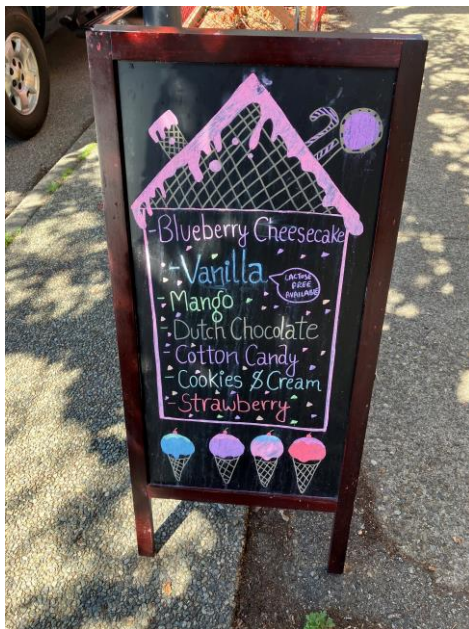 -Blueberry Cheesecake
-Vanilla
LACTOSE
FREE
AVAILABLE
-Mango
-Dutch Chocolate
-Cotton Candy
-Cookies & Cream
-Strawberry